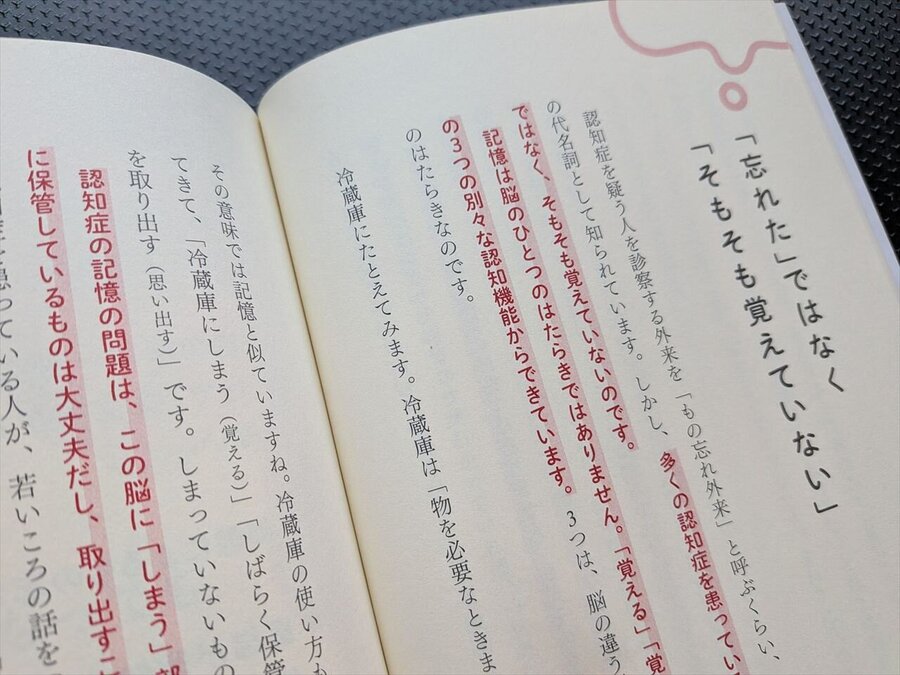 「忘れた」ではなく
「そもそも覚えていない」
認知症を疑う人を診察する外来を「もの忘れ外来」と呼ぶくらい、
の代名詞として知られています。しかし、多くの認知症を患ってい
ではなく、そもそも覚えていないのです。
記憶は脳のひとつのはたらきではありません。「覚える」「覚
の3つの別々な認知機能からできています。3つは、脳の違う
のはたらきなのです。
冷蔵庫にたとえてみます。冷蔵庫は「物を必要なときま
その意味では記憶と似ていますね。冷蔵庫の使い方も
てきて、「冷蔵庫にしまう（覚える）」「しばらく保管
を取り出す（思い出す）」です。しまっていないもの
認知症の記憶の問題は、この脳に「しまう」部
に保管しているものは大丈夫だし、取り出すこ
患っている人が、若いころの話を